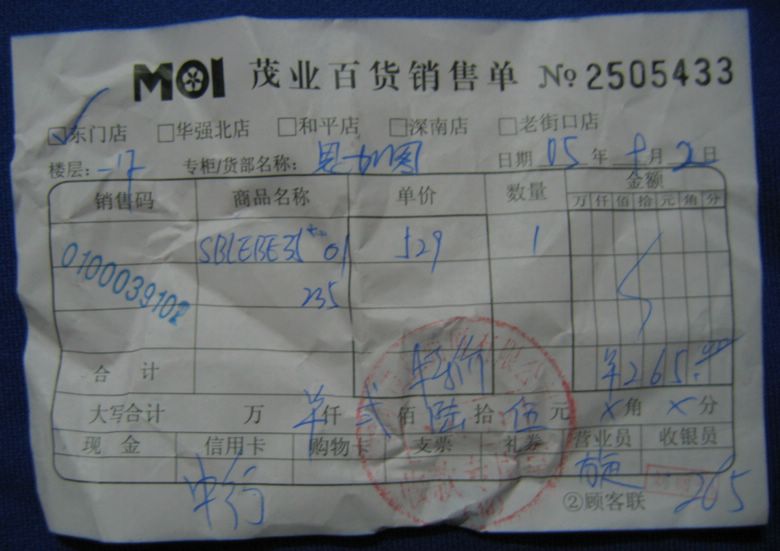 MOI 茂业百货销售单 №2505433
东门店 华强北店 和平店 深南店 老街口店
楼层: 专柜/货部名称: 日期 05 年 月 2 日
销售码 商品名称 单价 数量 金额
万 仟 佰 拾 元 角 分
0100039102 529 1
235
合计 半价 ¥265.00
大写合计 万 ¥仟 贰 佰 陆 拾 伍 元 × 角 × 分
现金 信用卡 购物卡 支票 礼券 营业员 收银员
中行 265
②顾客联